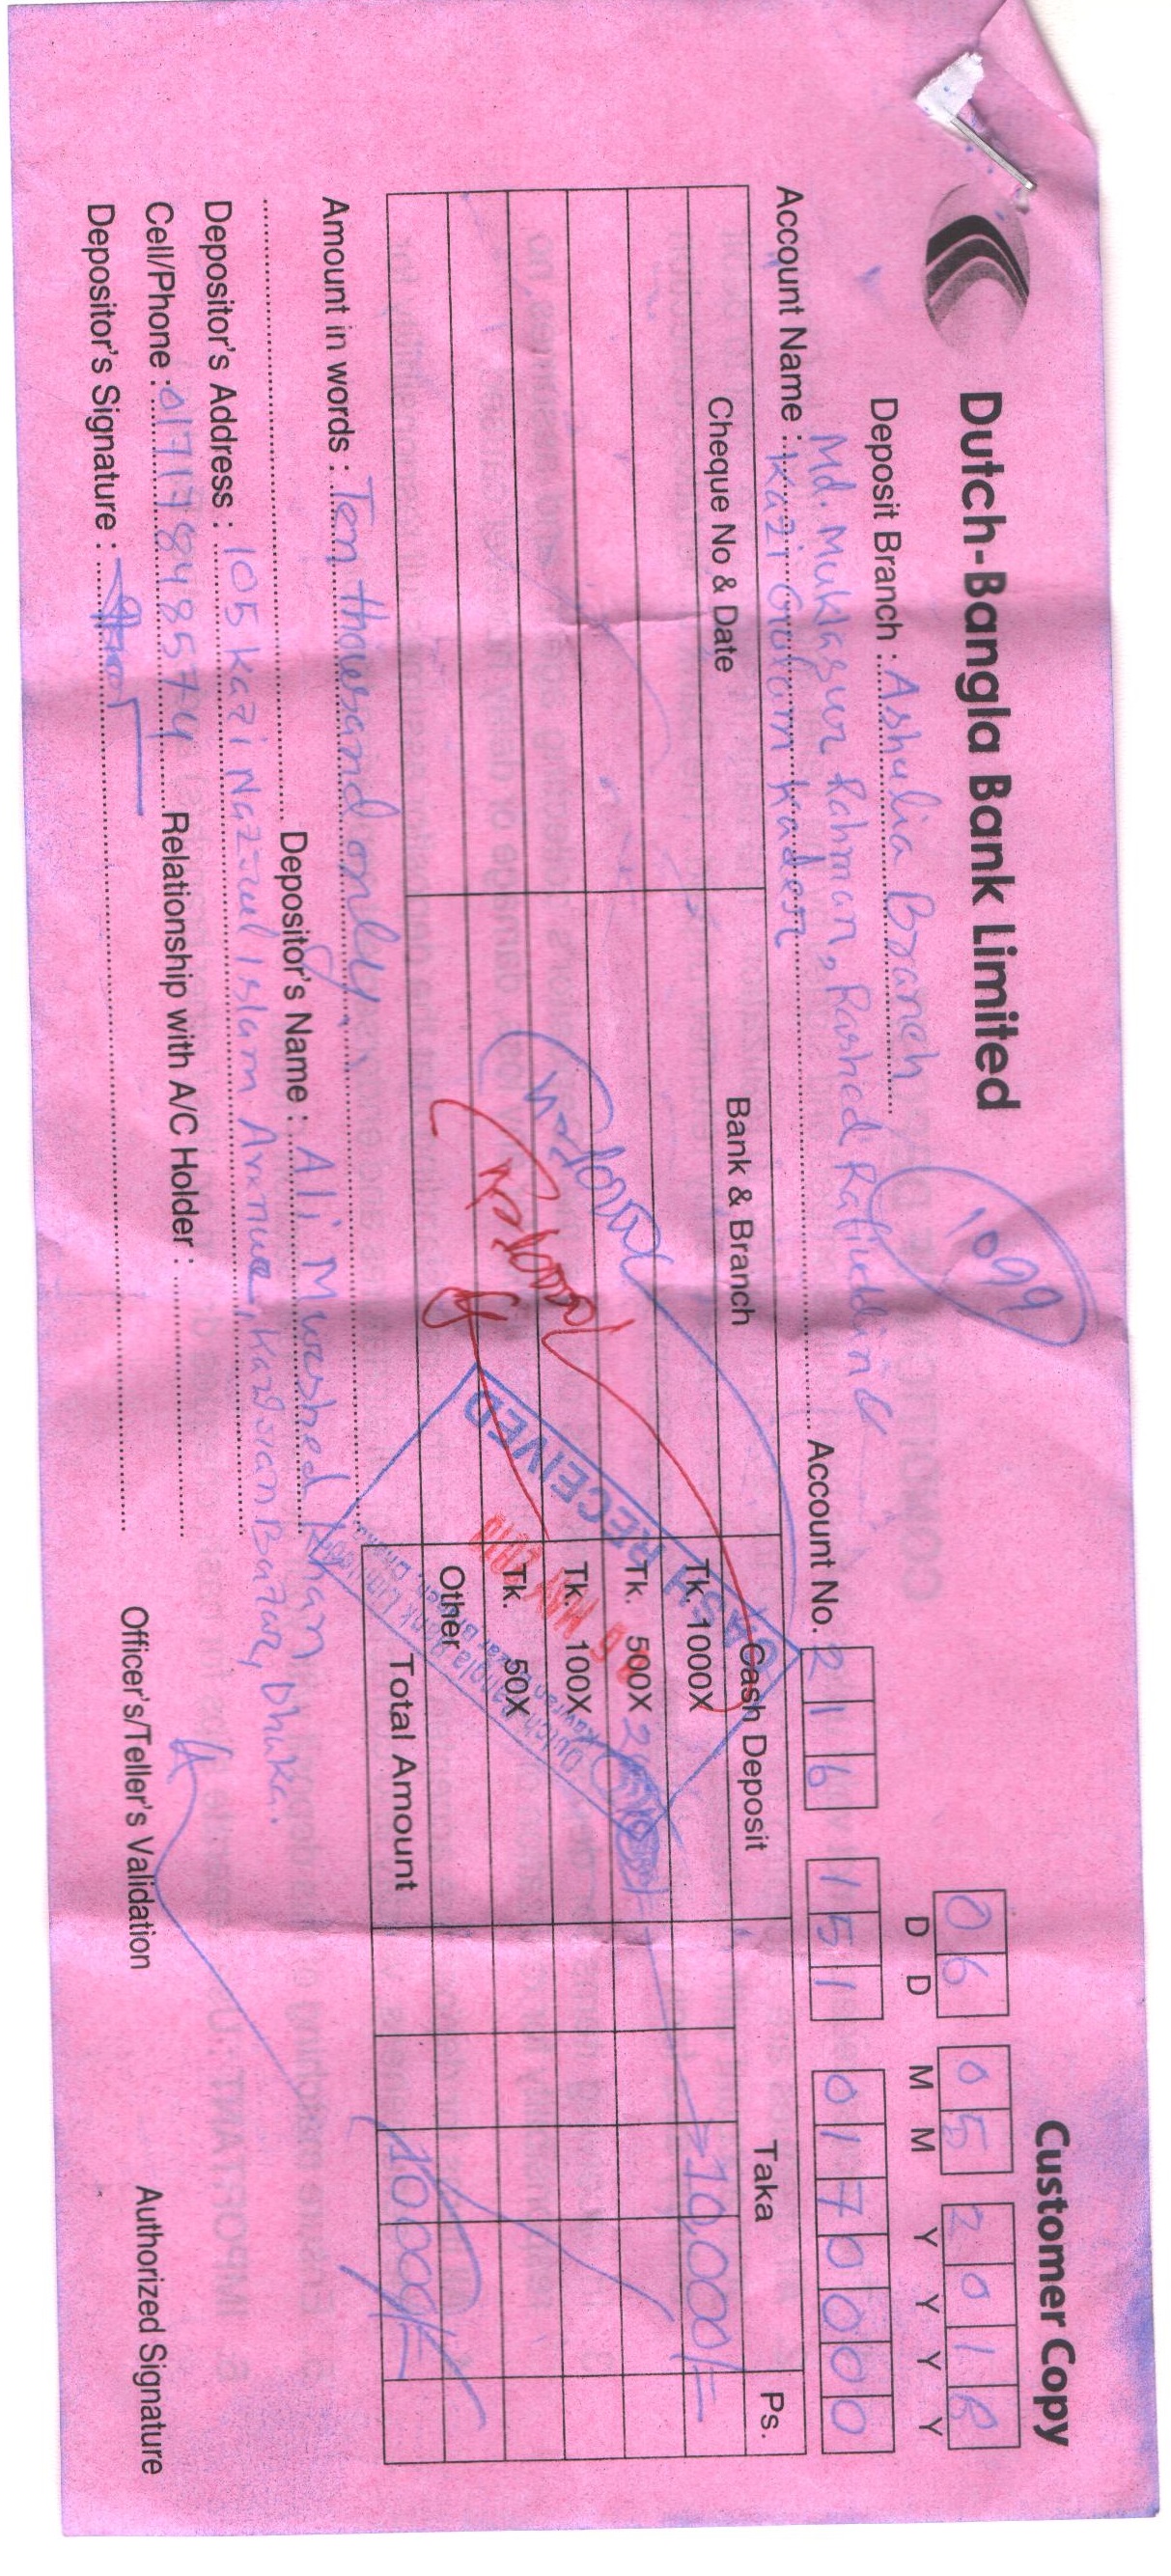 Customer Copy
Dutch-Bangla Bank Limited
1099
06 05 2018
D D M M Y Y Y Y
Deposit Branch : Ashulia Branch
Md. Muktasur Rahman, Rashed Rafiuddin &
Account Name : Kazi Golam Kader
Account No. 216 151 0170000
Cheque No & Date Bank & Branch Cash Deposit Taka Ps.
Tk. 1000X
Tk. 500X 20 10,000/=
Tk. 100X
Tk. 50X
Other
Total Amount 10000/=
CASH RECEIVED
Dutch-Bangla Bank Limited
Amount in words : Ten thousand only.
Depositor's Name : Ali Murshed Khan
Depositor's Address : 105 Kazi Nazrul Islam Avenue, Kawran Bazar, Dhaka.
Cell/Phone : 01717848574 Relationship with A/C Holder :
Depositor's Signature :
Officer's/Teller's Validation Authorized Signature